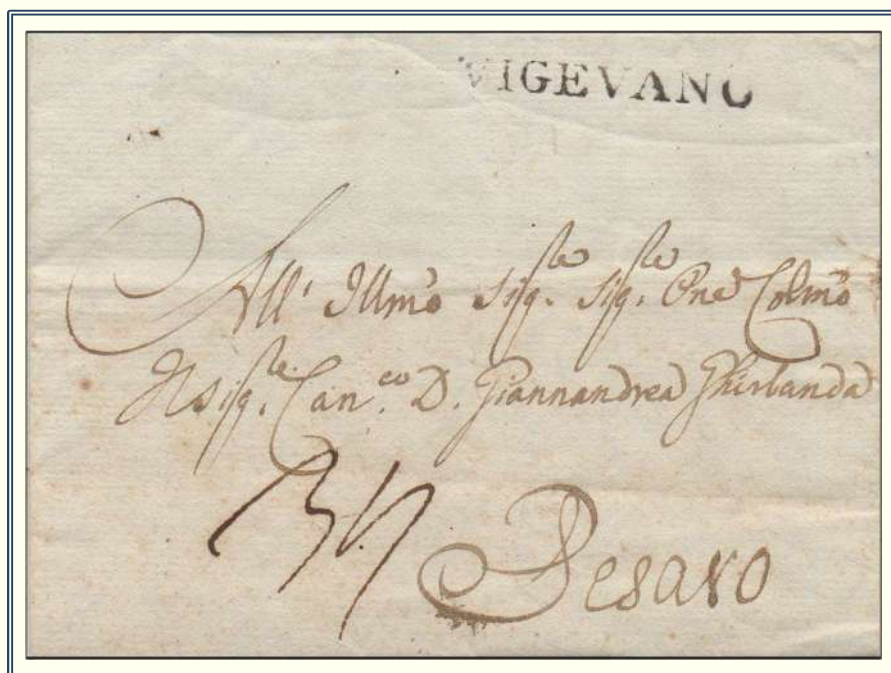 VIGEVANO
All' Illmo Sig.re Sig.re Pne Colmo
Il Sig.re Can.co D. Giannandrea Ghirlanda
Pesaro